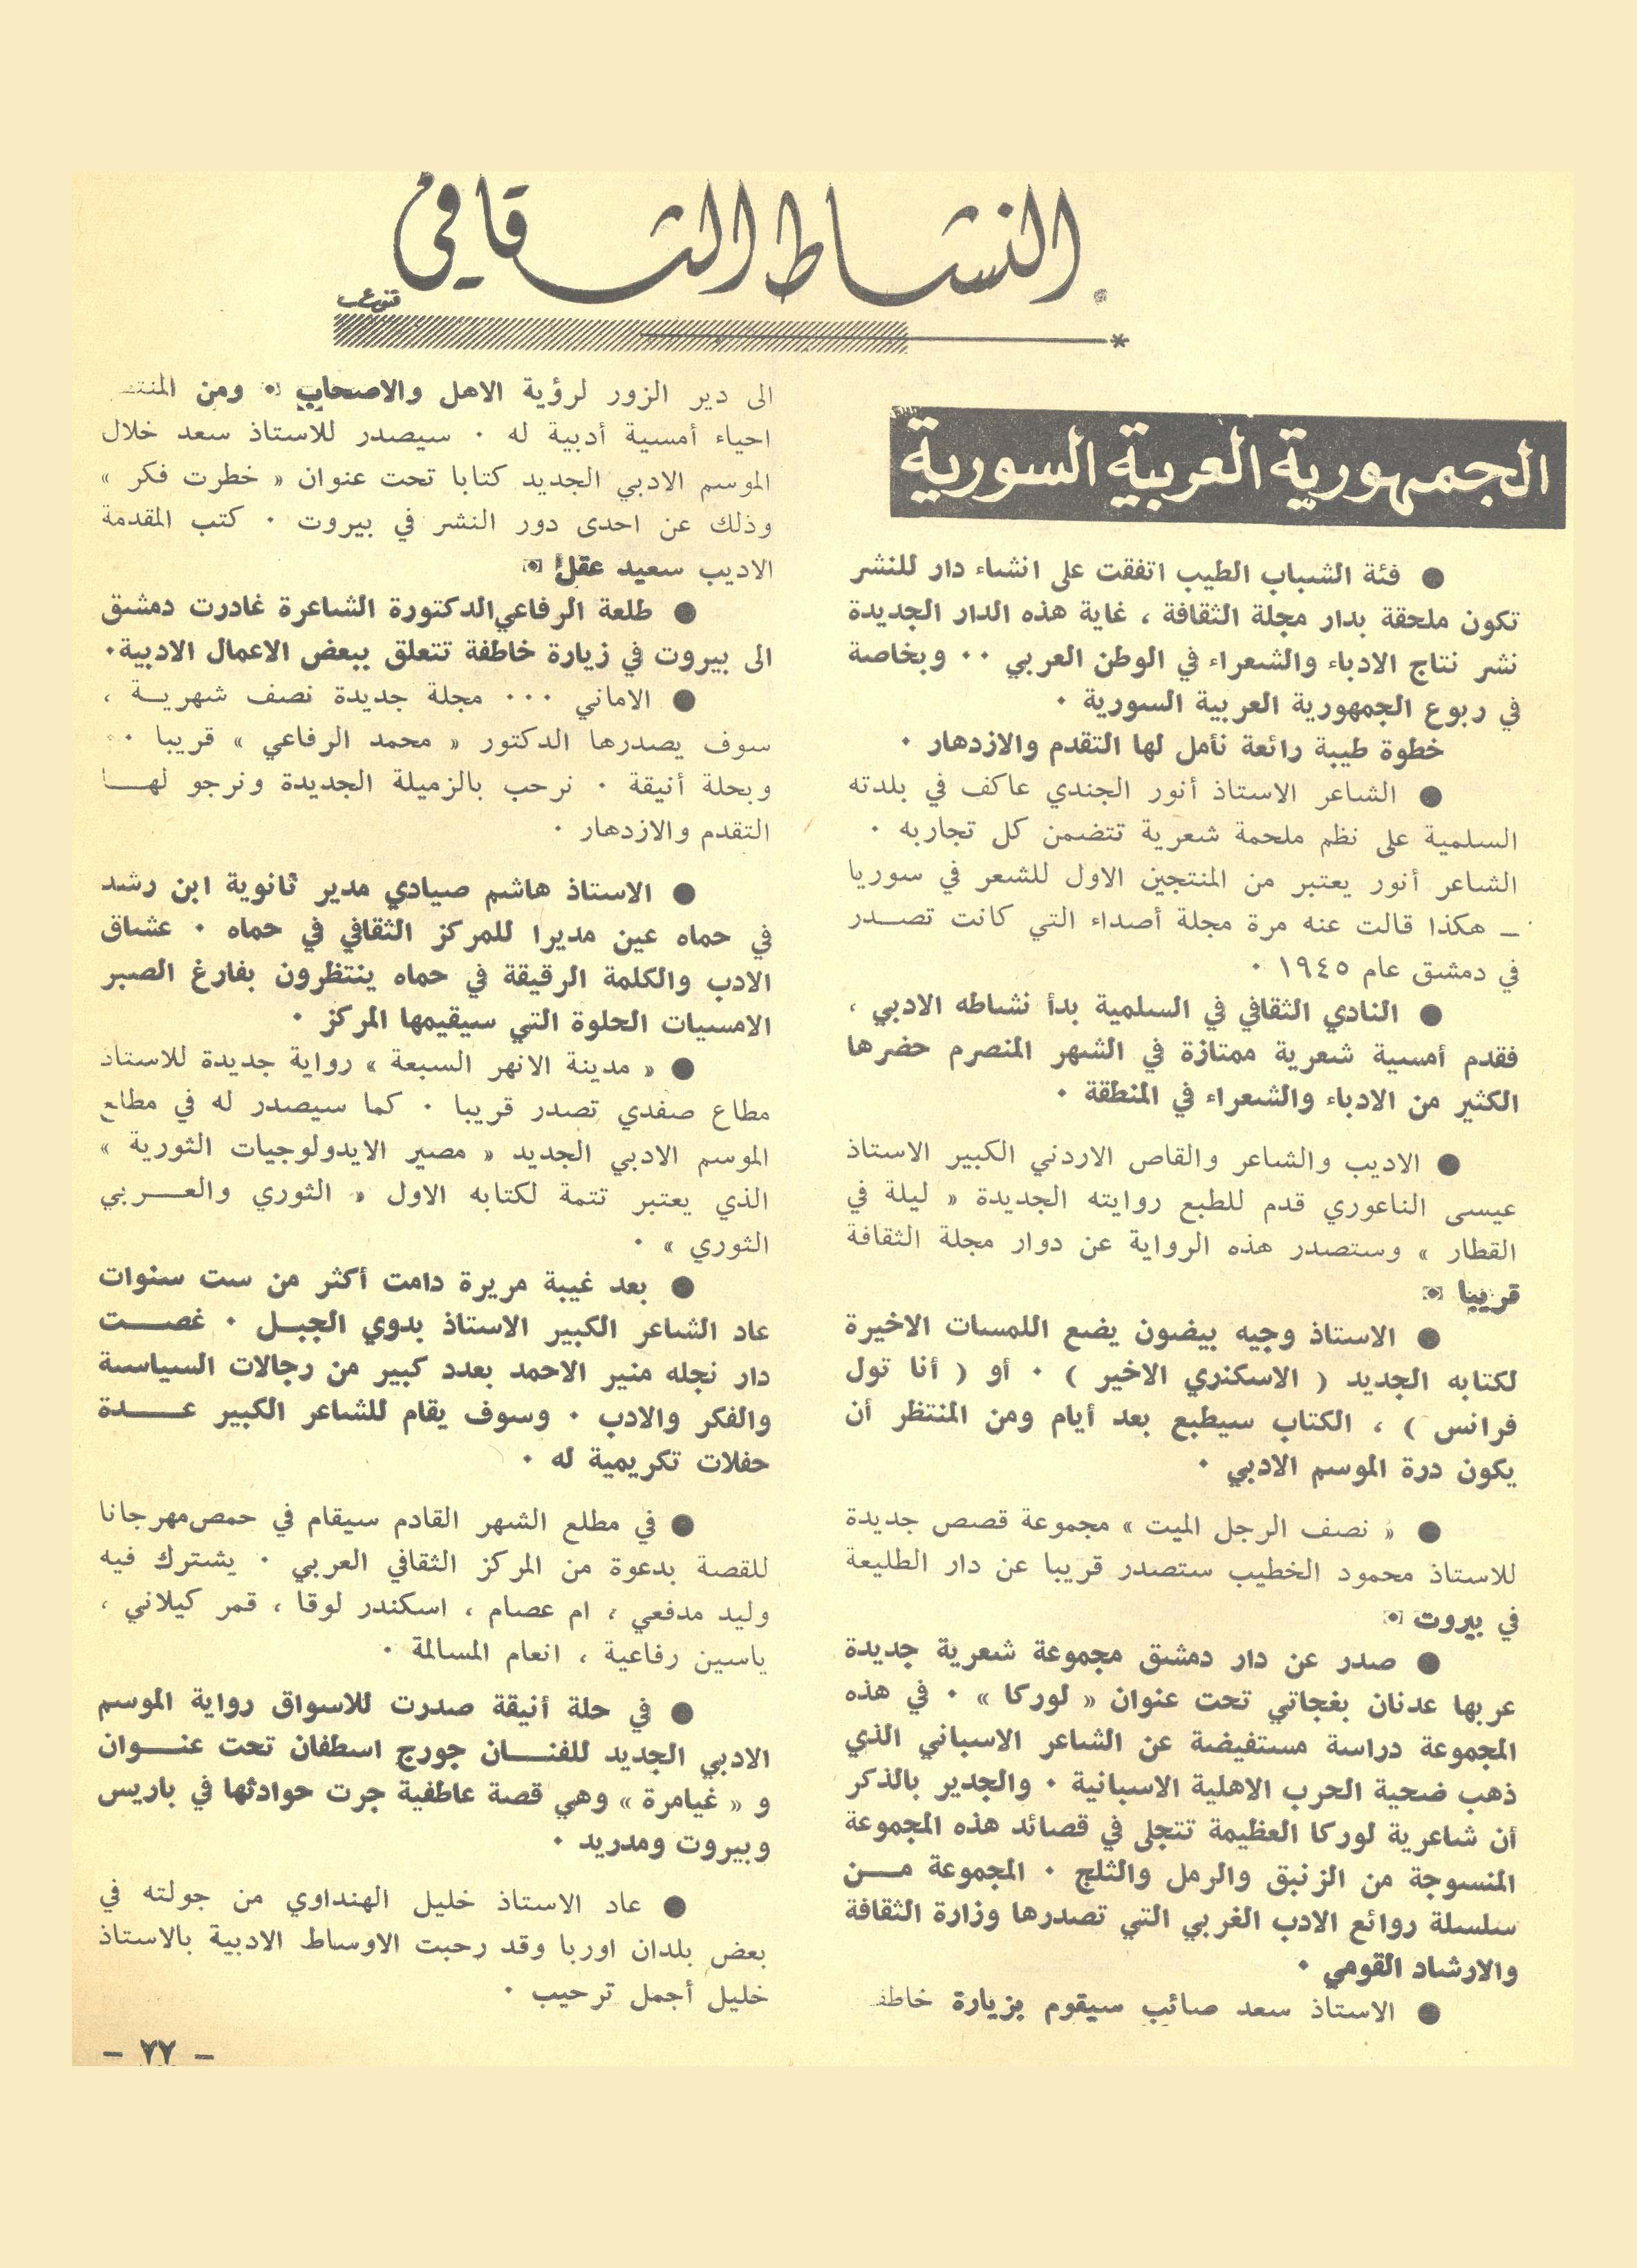 النشاط الثقافي
الجمهورية العربية السورية
● فئة الشباب الطيب اتفقت على انشاء دار للنشر
تكون ملحقة بدار مجلة الثقافة ، غاية هذه الدار الجديدة
نشر نتاج الادباء والشعراء في الوطن العربي ٠٠ وبخاصة
في ربوع الجمهورية العربية السورية ٠
خطوة طيبة رائعة نأمل لها التقدم والازدهار ٠
● الشاعر الاستاذ أنور الجندي عاكف في بلدته
السلمية على نظم ملحمة شعرية تتضمن كل تجاربه ٠
الشاعر أنور يعتبر من المنتجين الاول للشعر في سوريا
ـ هكذا قالت عنه مرة مجلة أصداء التي كانت تصـدر
في دمشق عام ١٩٤٥ ٠
● النادي الثقافي في السلمية بدأ نشاطه الادبي ،
فقدم أمسية شعرية ممتازة في الشهر المنصرم حضرها
الكثير من الادباء والشعراء في المنطقة ٠
● الاديب والشاعر والقاص الاردني الكبير الاستاذ
عيسى الناعوري قدم للطبع روايته الجديدة « ليلة في
القطار » وستصدر هذه الرواية عن دوار مجلة الثقافة
قريبا
● الاستاذ وجيه بيضون يضع اللمسات الاخيرة
لكتابه الجديد ( الاسكنري الاخير ) ٠ أو ( أنا تول
فرانس ) ، الكتاب سيطبع بعد أيام ومن المنتظر أن
يكون درة الموسم الادبي ٠
● « نصف الرجل الميت » مجموعة قصص جديدة
للاستاذ محمود الخطيب ستصدر قريبا عن دار الطليعة
في بيروت
● صدر عن دار دمشق مجموعة شعرية جديدة
عربها عدنان بغجاتي تحت عنوان « لوركا » ٠ في هذه
المجموعة دراسة مستفيضة عن الشاعر الاسباني الذي
ذهب ضحية الحرب الاهلية الاسبانية ٠ والجدير بالذكر
أن شاعرية لوركا العظيمة تتجلى في قصائد هذه المجموعة
المنسوجة من الزنبق والرمل والثلج ٠ المجموعة مـن
سلسلة روائع الادب الغربي التي تصدرها وزارة الثقافة
والارشاد القومي ٠
● الاستاذ سعد صائب سيقوم بزيارة
الى دير الزور لرؤية الاهل والاصحاب ومن
احياء أمسية أدبية له ٠ سيصدر للاستاذ سعد خلال
الموسم الادبي الجديد كتابا تحت عنوان « خطرت فكر »
وذلك عن احدى دور النشر في بيروت ٠ كتب المقدمة
الاديب سعيد عقل
● طلعة الرفاعي الدكتورة الشاعرة غادرت دمشق
الى بيروت في زيارة خاطفة تتعلق ببعض الاعمال الادبية٠
● الاماني ٠٠٠ مجلة جديدة نصف شهريـة ،
سوف يصدرها الدكتور « محمد الرفاعي » قريبا ٠
وبحلة أنيقة ٠ نرحب بالزميلة الجديدة ونرجو لهـا
التقدم والازدهار ٠
● الاستاذ هاشم صيادي مدير ثانوية ابن رشد
في حماه عين مديرا للمركز الثقافي في حماه ٠ عشاق
الادب والكلمة الرقيقة في حماه ينتظرون بفارغ الصبر
الامسيات الحلوة التي سيقيمها المركز ٠
● « مدينة الانهر السبعة » رواية جديدة للاستاذ
مطاع صفدي تصدر قريبا ٠ كما سيصدر له في مطلع
الموسم الادبي الجديد « مصير الايدولوجيات الثورية »
الذي يعتبر تتمة لكتابه الاول « الثوري والعـربي
الثوري » ٠
● بعد غيبة مريرة دامت أكثر من ست سنوات
عاد الشاعر الكبير الاستاذ بدوي الجبـل ٠ غصـت
دار نجله منير الاحمد بعدد كبير من رجالات السياسة
والفكر والادب ٠ وسوف يقام للشاعر الكبير عـدة
حفلات تكريمية له ٠
● في مطلع الشهر القادم سيقام في حمص مهرجانا
للقصة بدعوة من المركز الثقافي العربي ٠ يشترك فيه
وليد مدفعي ، ام عصام ، اسكندر لوقا ، قمر كيلاني ،
ياسين رفاعية ، انعام المسالمة ٠
● في حلة أنيقة صدرت للاسواق رواية الموسم
الادبي الجديد للفنـان جورج اسطفان تحت عنـوان
و « غيامرة » وهي قصة عاطفية جرت حوادثها في باريس
وبيروت ومدريد ٠
● عاد الاستاذ خليل الهنداوي من جولته في
بعض بلدان اوربا وقد رحبت الاوساط الادبية بالاستاذ
خليل أجمل ترحيب ٠
- ٧٧ -